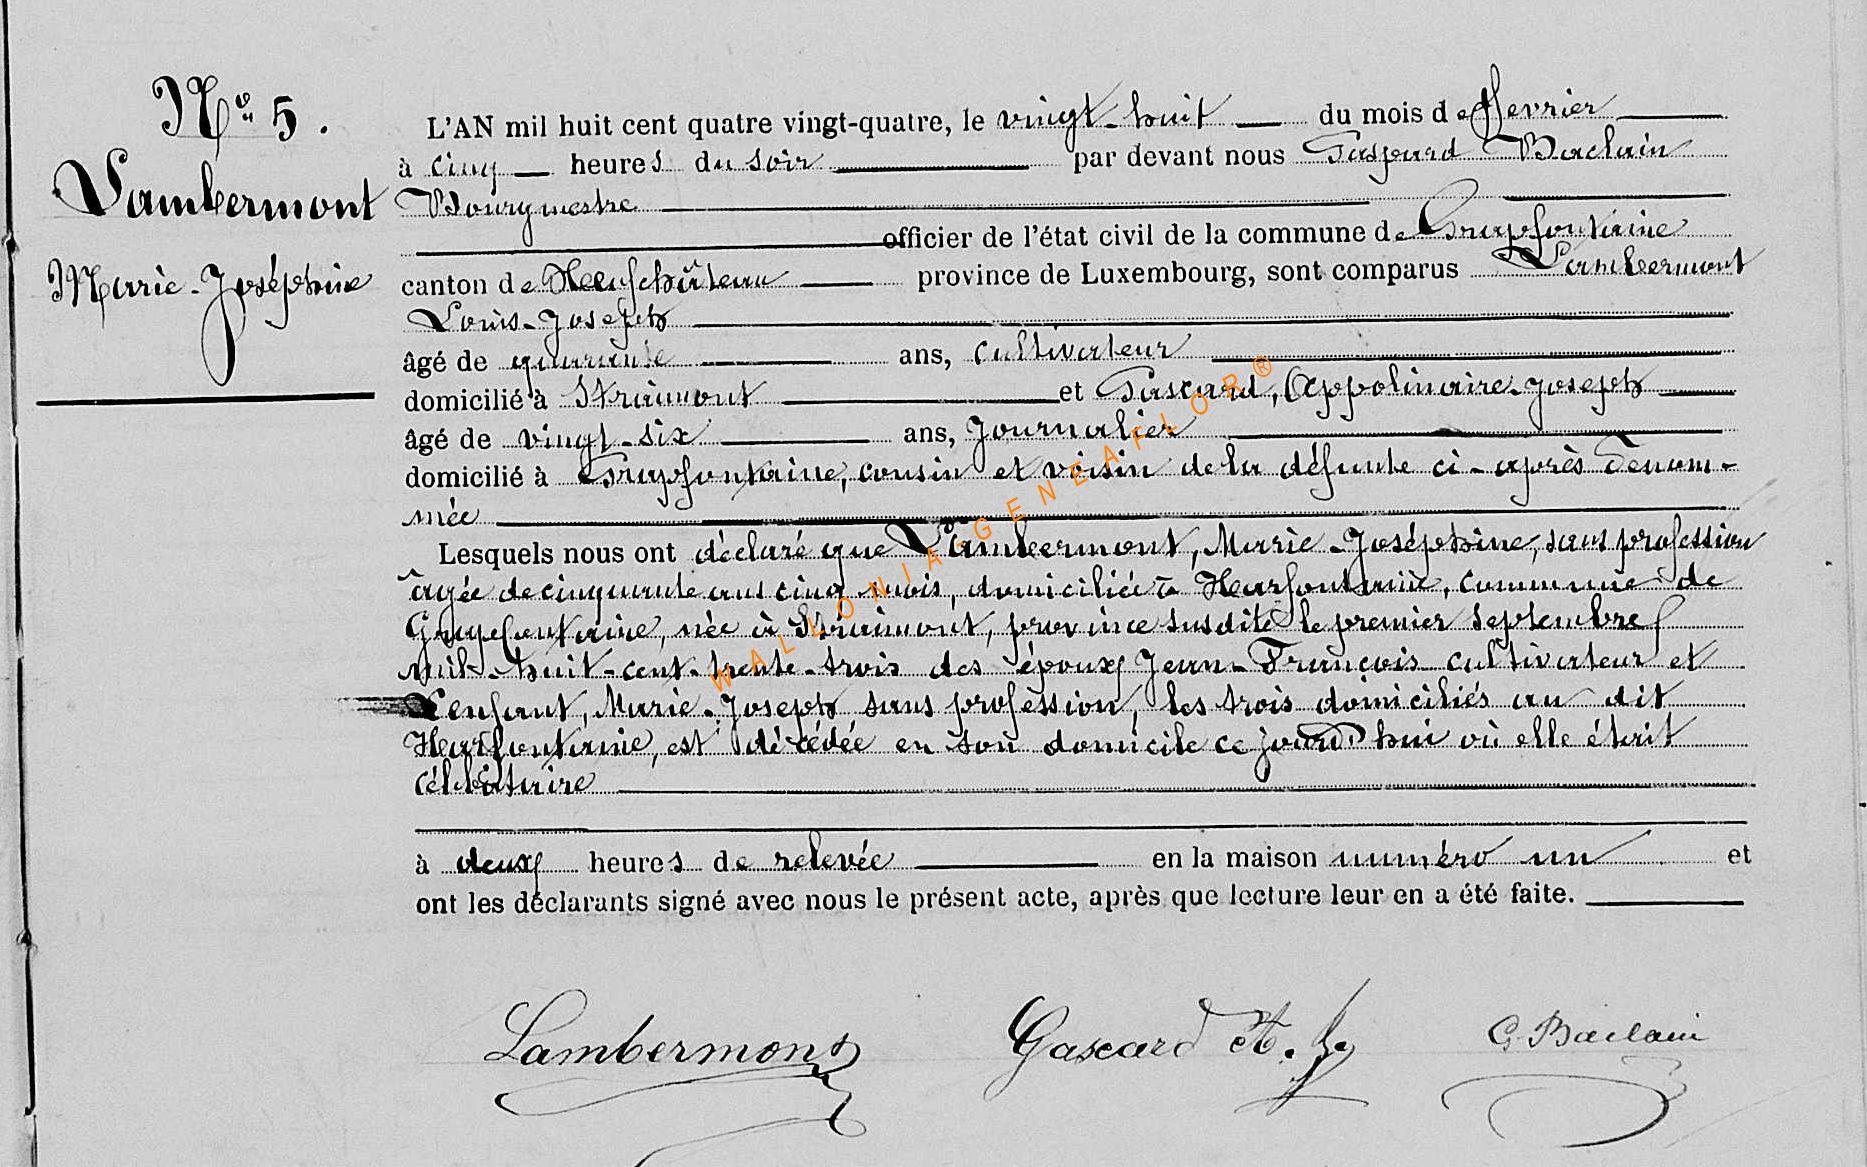 N° 5.
Lambermont
Marie-Joséphine
L'AN mil huit cent quatre vingt-quatre, le vingt-huit du mois de fevrier
à cinq heures du soir par devant nous Gaspard Baclain
Bourgmestre
officier de l'état civil de la commune de Grapfontaine
canton de Neufchâteau province de Luxembourg, sont comparus Lambermont
Louis-Joseph
âgé de quarante ans, cultivateur
domicilié à Straimont et Gascard, Appolinaire-Joseph
âgé de vingt-six ans, Journalier
domicilié à Grapfontaine, cousin et voisin de la défunte ci-après dénom-
mée
Lesquels nous ont déclaré que Lambermont, Marie-Joséphine, sans profession
âgée de cinquante ans cinq mois, domiciliée à Harfontaine, commune de
Grapfontaine, née à Straimont, province susdite le premier septembre
mil-huit-cent-trente-trois des époux Jean-François cultivateur et
Lenfant, Marie-Joseph sans profession, les trois domiciliés au dit
Harfontaine, est décédée en son domicile ce jourd'hui où elle était
célibataire
à deux heures de relevée en la maison numéro un et
ont les déclarants signé avec nous le présent acte, après que lecture leur en a été faite.
Lambermont Gascard A. J. G. Baclain
WALLONIA-GENEAFLOR®